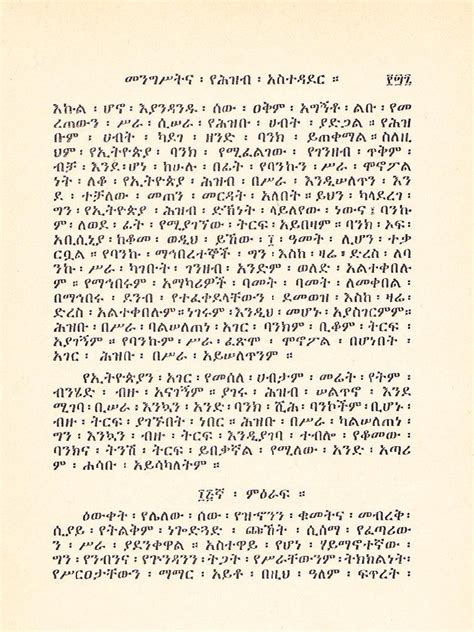 መንግሥትና ፡ የሕዝብ ፡ አስተዳደር ።
እኩል ፡ ሆኖ ፡ እያንዳንዱ ፡ ሰው ፡ ዐቅም ፡ አግኝቶ ፡ ልቡ ፡ የመ
ረጠውን ፡ ሥራ ፡ ሲሠራ ፡ የሕዝቡ ፡ ሀብት ፡ ያድጋል ። የሕዝ
ቡም ፡ ሀብት ፡ ካደገ ፡ ዘንድ ፡ ባንክ ፡ ይጠቀማል ። ስለዚ
ህም ፡ የኢትዮጵያ ፡ ባንክ ፡ የሚፈልገው ፡ የገንዘብ ፡ ጥቅም ፡
ብቻ ፡ እንደ ፡ ሆነ ፡ ከሁሉ ፡ በፊት ፡ የባንኩን ፡ ሥራ ፡ ሞኖፖል
ነት ፡ ለቆ ፡ የኢትዮጵያ ፡ ሕዝብ ፡ በሥራ ፡ እንዲሠለጥን ፡ እን
ደ ፡ ተቻለው ፡ መጠን ፡ መርዳት ፡ አለበት ። ይህን ፡ ካላደረገ ፡
ግን ፡ የኢትዮጵያ ፡ ሕዝብ ፡ ድኸነት ፡ ላይለየው ፡ ነውና ፤ ባንኩ
ም ፡ ለወደ ፡ ፊት ፡ የሚያገኘው ፡ ትርፍ ፡ አይበዛም ። ባንክ ፡ ኦፍ ፡
አቢሲኒያ ፡ ከቆመ ፡ ወዲህ ፡ ይኸው ፡ ፤ ዓመት ፡ ሊሆን ፡ ተቃ
ርቧል ። የባንኩ ፡ ማኅበረተኞች ፡ ግን ፡ እስከ ፡ ዛሬ ፡ ድረስ ፡ ለባ
ንኩ ፡ ሥራ ፡ ካገቡት ፡ ገንዘብ ፡ አንድም ፡ ወለድ ፡ አልተቀበሉ
ም ። የማኅበሩም ፡ አማካሪዎች ፡ ባመት ፡ ባመት ፡ ለመቀበል ፡
በማኅበሩ ፡ ደንብ ፡ የተፈቀደላቸውን ፡ ደመወዝ ፡ እስከ ፡ ዛሬ ፡
ድረስ ፡ አልተቀበሉም ። ነገሩም ፡ እንዲህ ፡ መሆኑ ፡ አያስገርምም ።
ሕዝቡ ፡ በሥራ ፡ ባልሠለጠነ ፡ አገር ፡ ባንክም ፡ ቢቆም ፡ ትርፍ ፡
አያገኝም ። የባንኩም ፡ ሥራ ፡ ፈጽሞ ፡ ሞኖፖል ፡ በሆነበት ፡
አገር ፡ ሕዝቡ ፡ በሥራ ፡ አይሠለጥንም ።
የኢትዮጵያን ፡ አገር ፡ የመሰለ ፡ ሀብታም ፡ መሬት ፡ የትም ፡
ብንሄድ ፡ ብዙ ፡ አናገኝም ። ያገሩ ፡ ሕዝብ ፡ ሠልጥኖ ፡ እንደ
ሚገባ ፡ ቢሠራ ፡ እንኳን ፡ አንድ ፡ ባንክ ፡ ሺሕ ፡ ባንኮችም ፡ ቢሆኑ ፡
ብዙ ፡ ትርፍ ፡ ያገኙበት ፡ ነበር ። ሕዝቡ ፡ በሥራ ፡ ካልሠለጠነ ፡
ግን ፡ እንኳን ፡ ብዙ ፡ ትርፍ ፡ እንዲያገባ ፡ ተብሎ ፡ የቆመው ፡
ባንክና ፡ ትንሽ ፡ ትርፍ ፡ ይበቃኛል ፡ የሚለው ፡ አንድ ፡ አጣሪ
ም ፡ ሐሳቡ ፡ አይሳካለትም ።
ምዕራፍ ።
ዕውቀት ፡ የሌለው ፡ ሰው ፡ የዝኆንን ፡ ቁመትና ፡ መብረቅ ፡
ሲያይ ፡ የትልቅም ፡ ነጐድጓድ ፡ ጩኸት ፡ ሲሰማ ፡ የፈጣሪው
ን ፡ ሥራ ፡ ያደንቀዋል ። አስተዋይ ፡ የሆነ ፡ ሃይማኖተኛው ፡
ግን ፡ የንብንና ፡ የጕንዳንን ፡ ትጋት ፡ የሥራቸውንም ፡ ትክክልነት ፡
የሥርዐታቸውን ፡ ማማር ፡ አይቶ ፡ በዚህ ፡ ዓለም ፡ ፍጥረት ፡